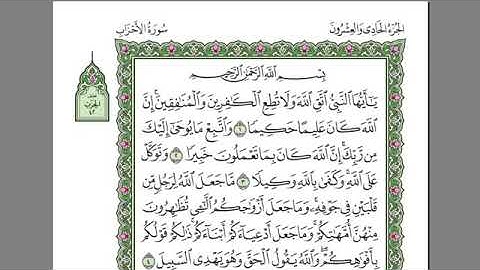 الجزء الحادي والعشرون
سورة الأحزاب
بِسْمِ اللَّهِ الرَّحْمَٰنِ الرَّحِيمِ
يَـٰٓأَيُّهَا النَّبِيُّ اتَّقِ اللَّهَ وَلَا تُطِعِ الْكَـٰفِرِينَ وَالْمُنَـٰفِقِينَ ۗ إِنَّ
اللَّهَ كَانَ عَلِيمًا حَكِيمًا ١ وَاتَّبِعْ مَا يُوحَىٰٓ إِلَيْكَ
مِن رَّبِّكَ ۚ إِنَّ اللَّهَ كَانَ بِمَا تَعْمَلُونَ خَبِيرًا ٢ وَتَوَكَّلْ
عَلَى اللَّهِ ۚ وَكَفَىٰ بِاللَّهِ وَكِيلًا ٣ مَّا جَعَلَ اللَّهُ لِرَجُلٍ مِّن
قَلْبَيْنِ فِي جَوْفِهِ ۚ وَمَا جَعَلَ أَزْوَٰجَكُمُ الَّـٰٓـِٔي تُظَـٰهِرُونَ
مِنْهُنَّ أُمَّهَـٰتِكُمْ ۚ وَمَا جَعَلَ أَدْعِيَآءَكُمْ أَبْنَآءَكُمْ ۚ ذَٰلِكُمْ قَوْلُكُم
بِأَفْوَٰهِكُمْ ۖ وَاللَّهُ يَقُولُ الْحَقَّ وَهُوَ يَهْدِي السَّبِيلَ ٤